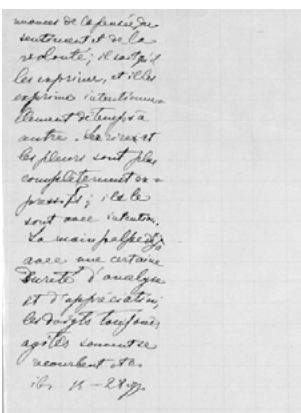 nuances de la pensée, du
sentiment et de la
volonté; il sait qu'il
les exprime, et il les
exprime intentionne-
llement de temps à
autre. Les rires et
les pleurs sont plus
complètement ex-
pressifs; ils le
sont avec intention.
La main palpe déjà
avec une certaine
sureté d'analyse
et d'appréciation;
les doigts toujours
agités souvent se
recourbent etc.
ib.